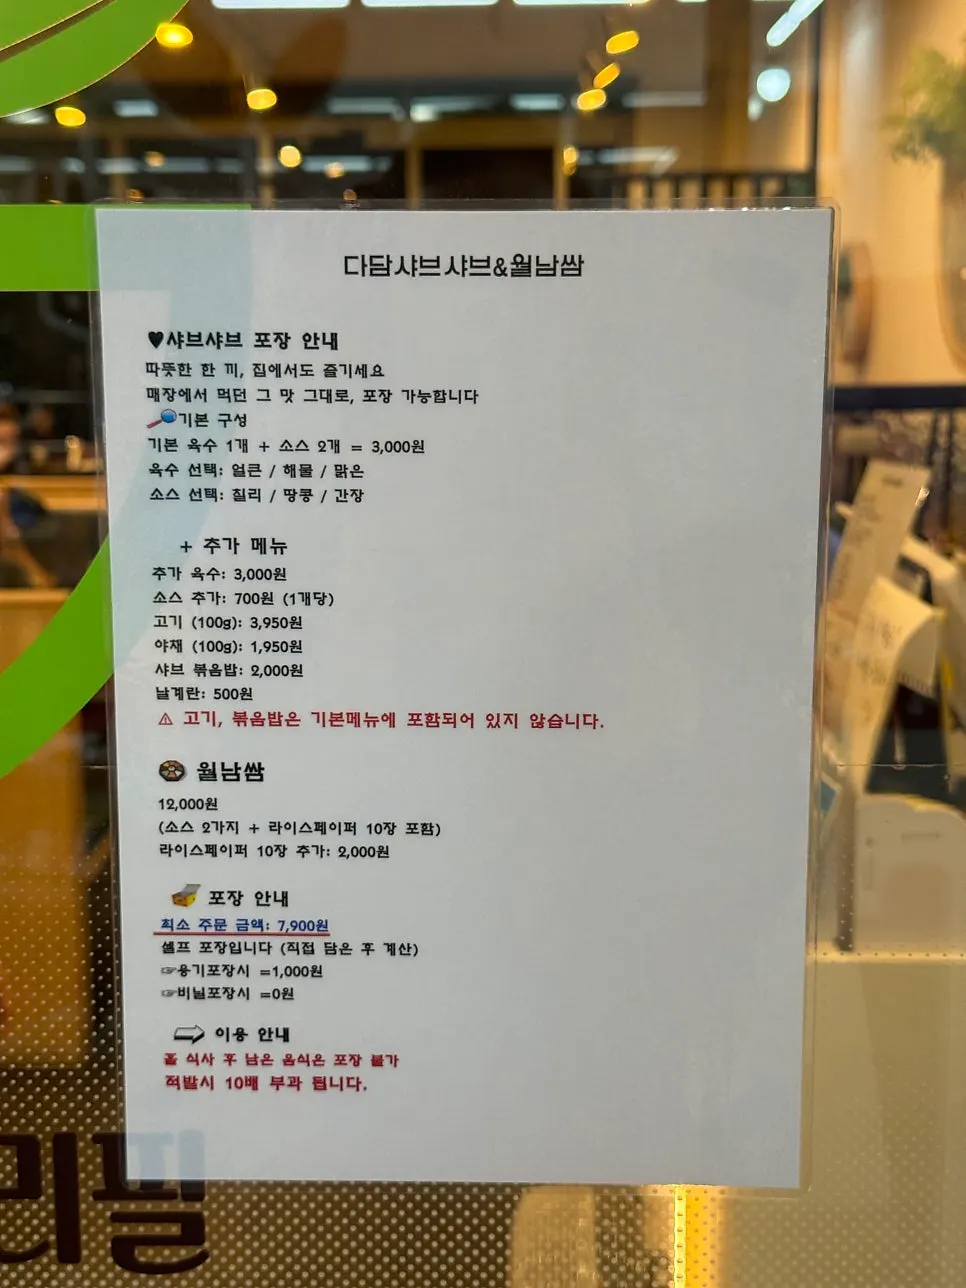 다담샤브샤브&월남쌈
♥샤브샤브 포장 안내
따뜻한 한 끼, 집에서도 즐기세요
매장에서 먹던 그 맛 그대로, 포장 가능합니다
🔎기본 구성
기본 육수 1개 + 소스 2개 = 3,000원
육수 선택: 얼큰 / 해물 / 맑은
소스 선택: 칠리 / 땅콩 / 간장
+ 추가 메뉴
추가 육수: 3,000원
소스 추가: 700원 (1개당)
고기 (100g): 3,950원
야채 (100g): 1,950원
샤브 볶음밥: 2,000원
날계란: 500원
⚠ 고기, 볶음밥은 기본메뉴에 포함되어 있지 않습니다.
월남쌈
12,000원
(소스 2가지 + 라이스페이퍼 10장 포함)
라이스페이퍼 10장 추가: 2,000원
포장 안내
최소 주문 금액: 7,900원
셀프 포장입니다 (직접 담은 후 계산)
☞용기포장시 =1,000원
☞비닐포장시 =0원
⇨ 이용 안내
홀 식사 후 남은 음식은 포장 불가
적발시 10배 부과 됩니다.
리필